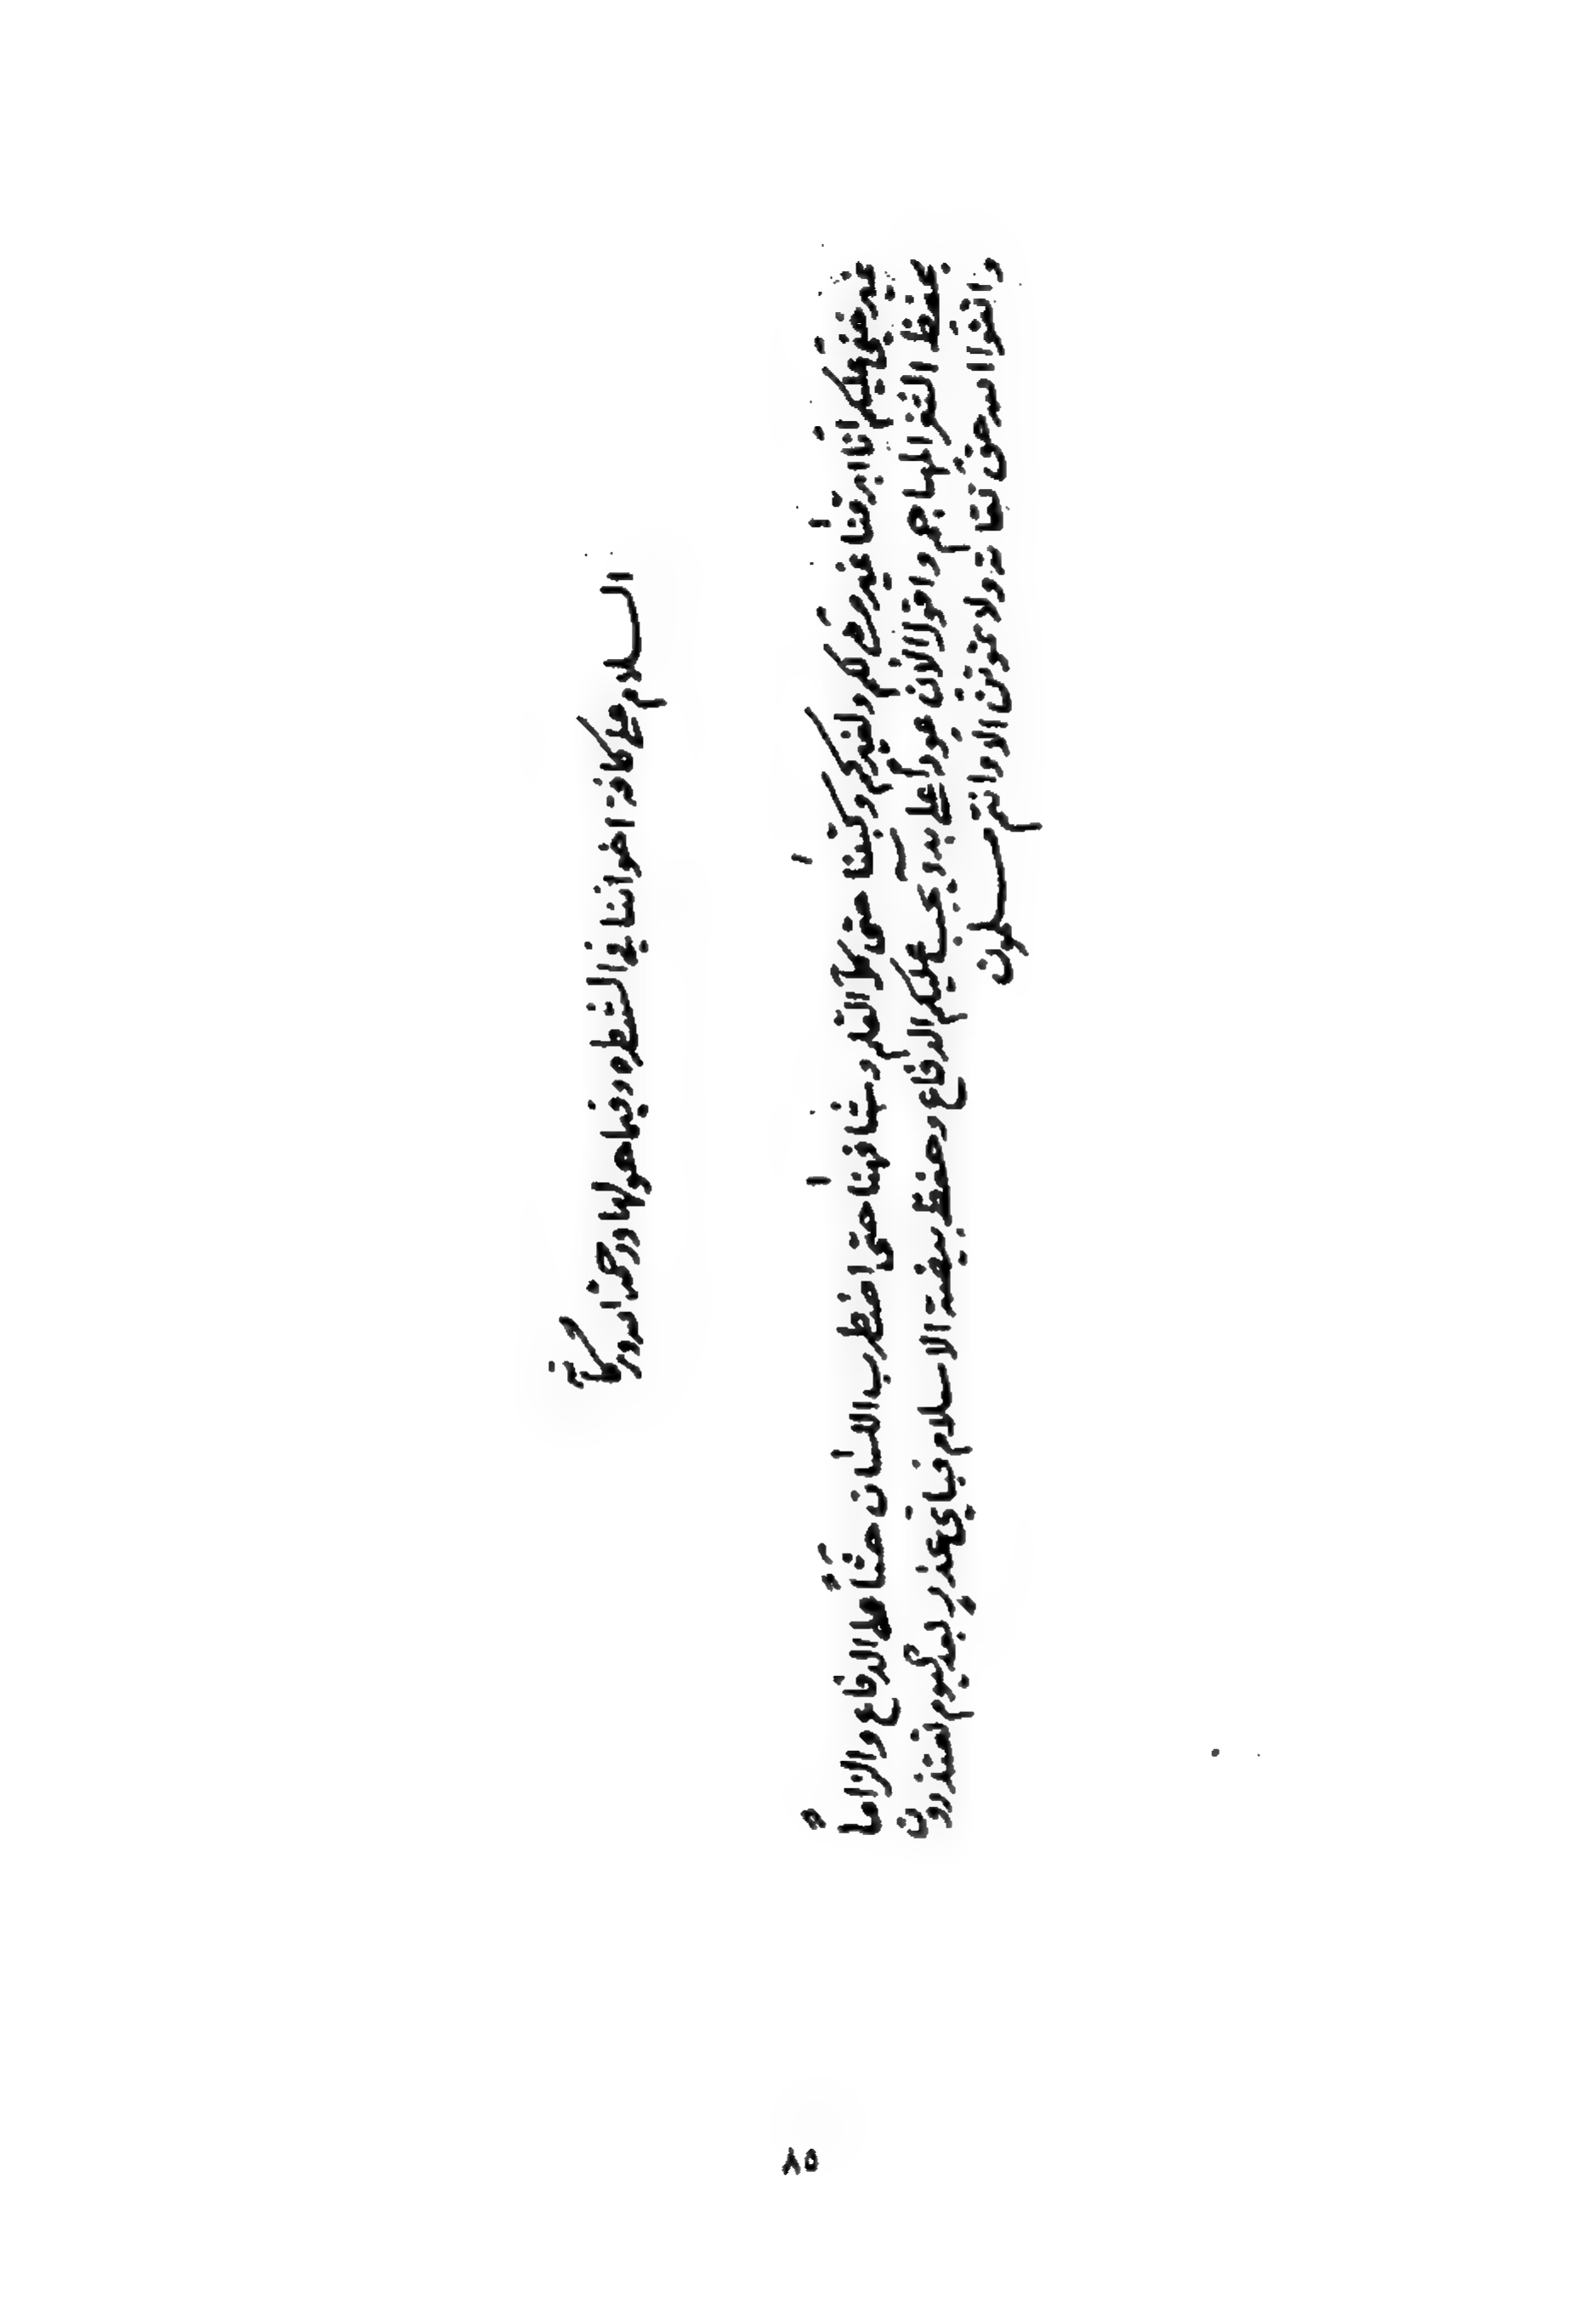 السلام على كافة اخواننا في الشطره وفيما حولها ورحمة الله وبركاته
غير خفي عليكم اننا ابرقنا غير مرة لكم ولغيركم وكتبنا حتى كلَّ القلم وشافهنا حتى اضطرب اللسان حثاً على الدفاع والزاماً
بحفظ الثغر المهاجم واقول الآن عوداً على بدءٍ يجب عليكم الدفاع وحفظ بيضة الاسلام فبأي عذر بعد اليوم تعتذرون
واتقوا الله حق تقاته ولا تموتن الا وانتم مسلمون
٨٥